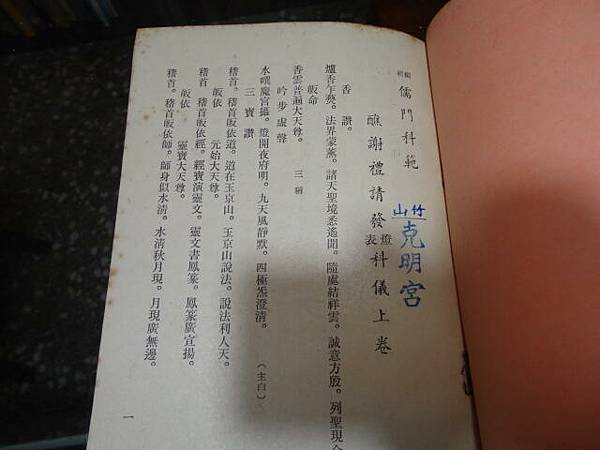 儒門科範
醮謝禮請發燈表科儀上卷
竹山克明宮
香讚。
爐香乍爇。法界蒙薰。諸天聖境悉遙聞。隨處結祥雲。誠意方殷。列聖現
皈命
香雲普遍大天尊。 三稱
吟步虛聲
水噀魔宮攝。燈開夜府明。九天風靜默。四極炁澄清。 (主白)
三寶讚
稽首。稽首皈依道。道在玉京山。玉京山說法。說法利人天。
皈依 元始大天尊。
稽首 稽首皈依經。經寶演靈文。靈文書鳳篆。鳳篆廣宣揚。
皈依 靈寶大天尊。
稽首。稽首皈依師。師身似水清。水清秋月現。月現廣無邊。
一